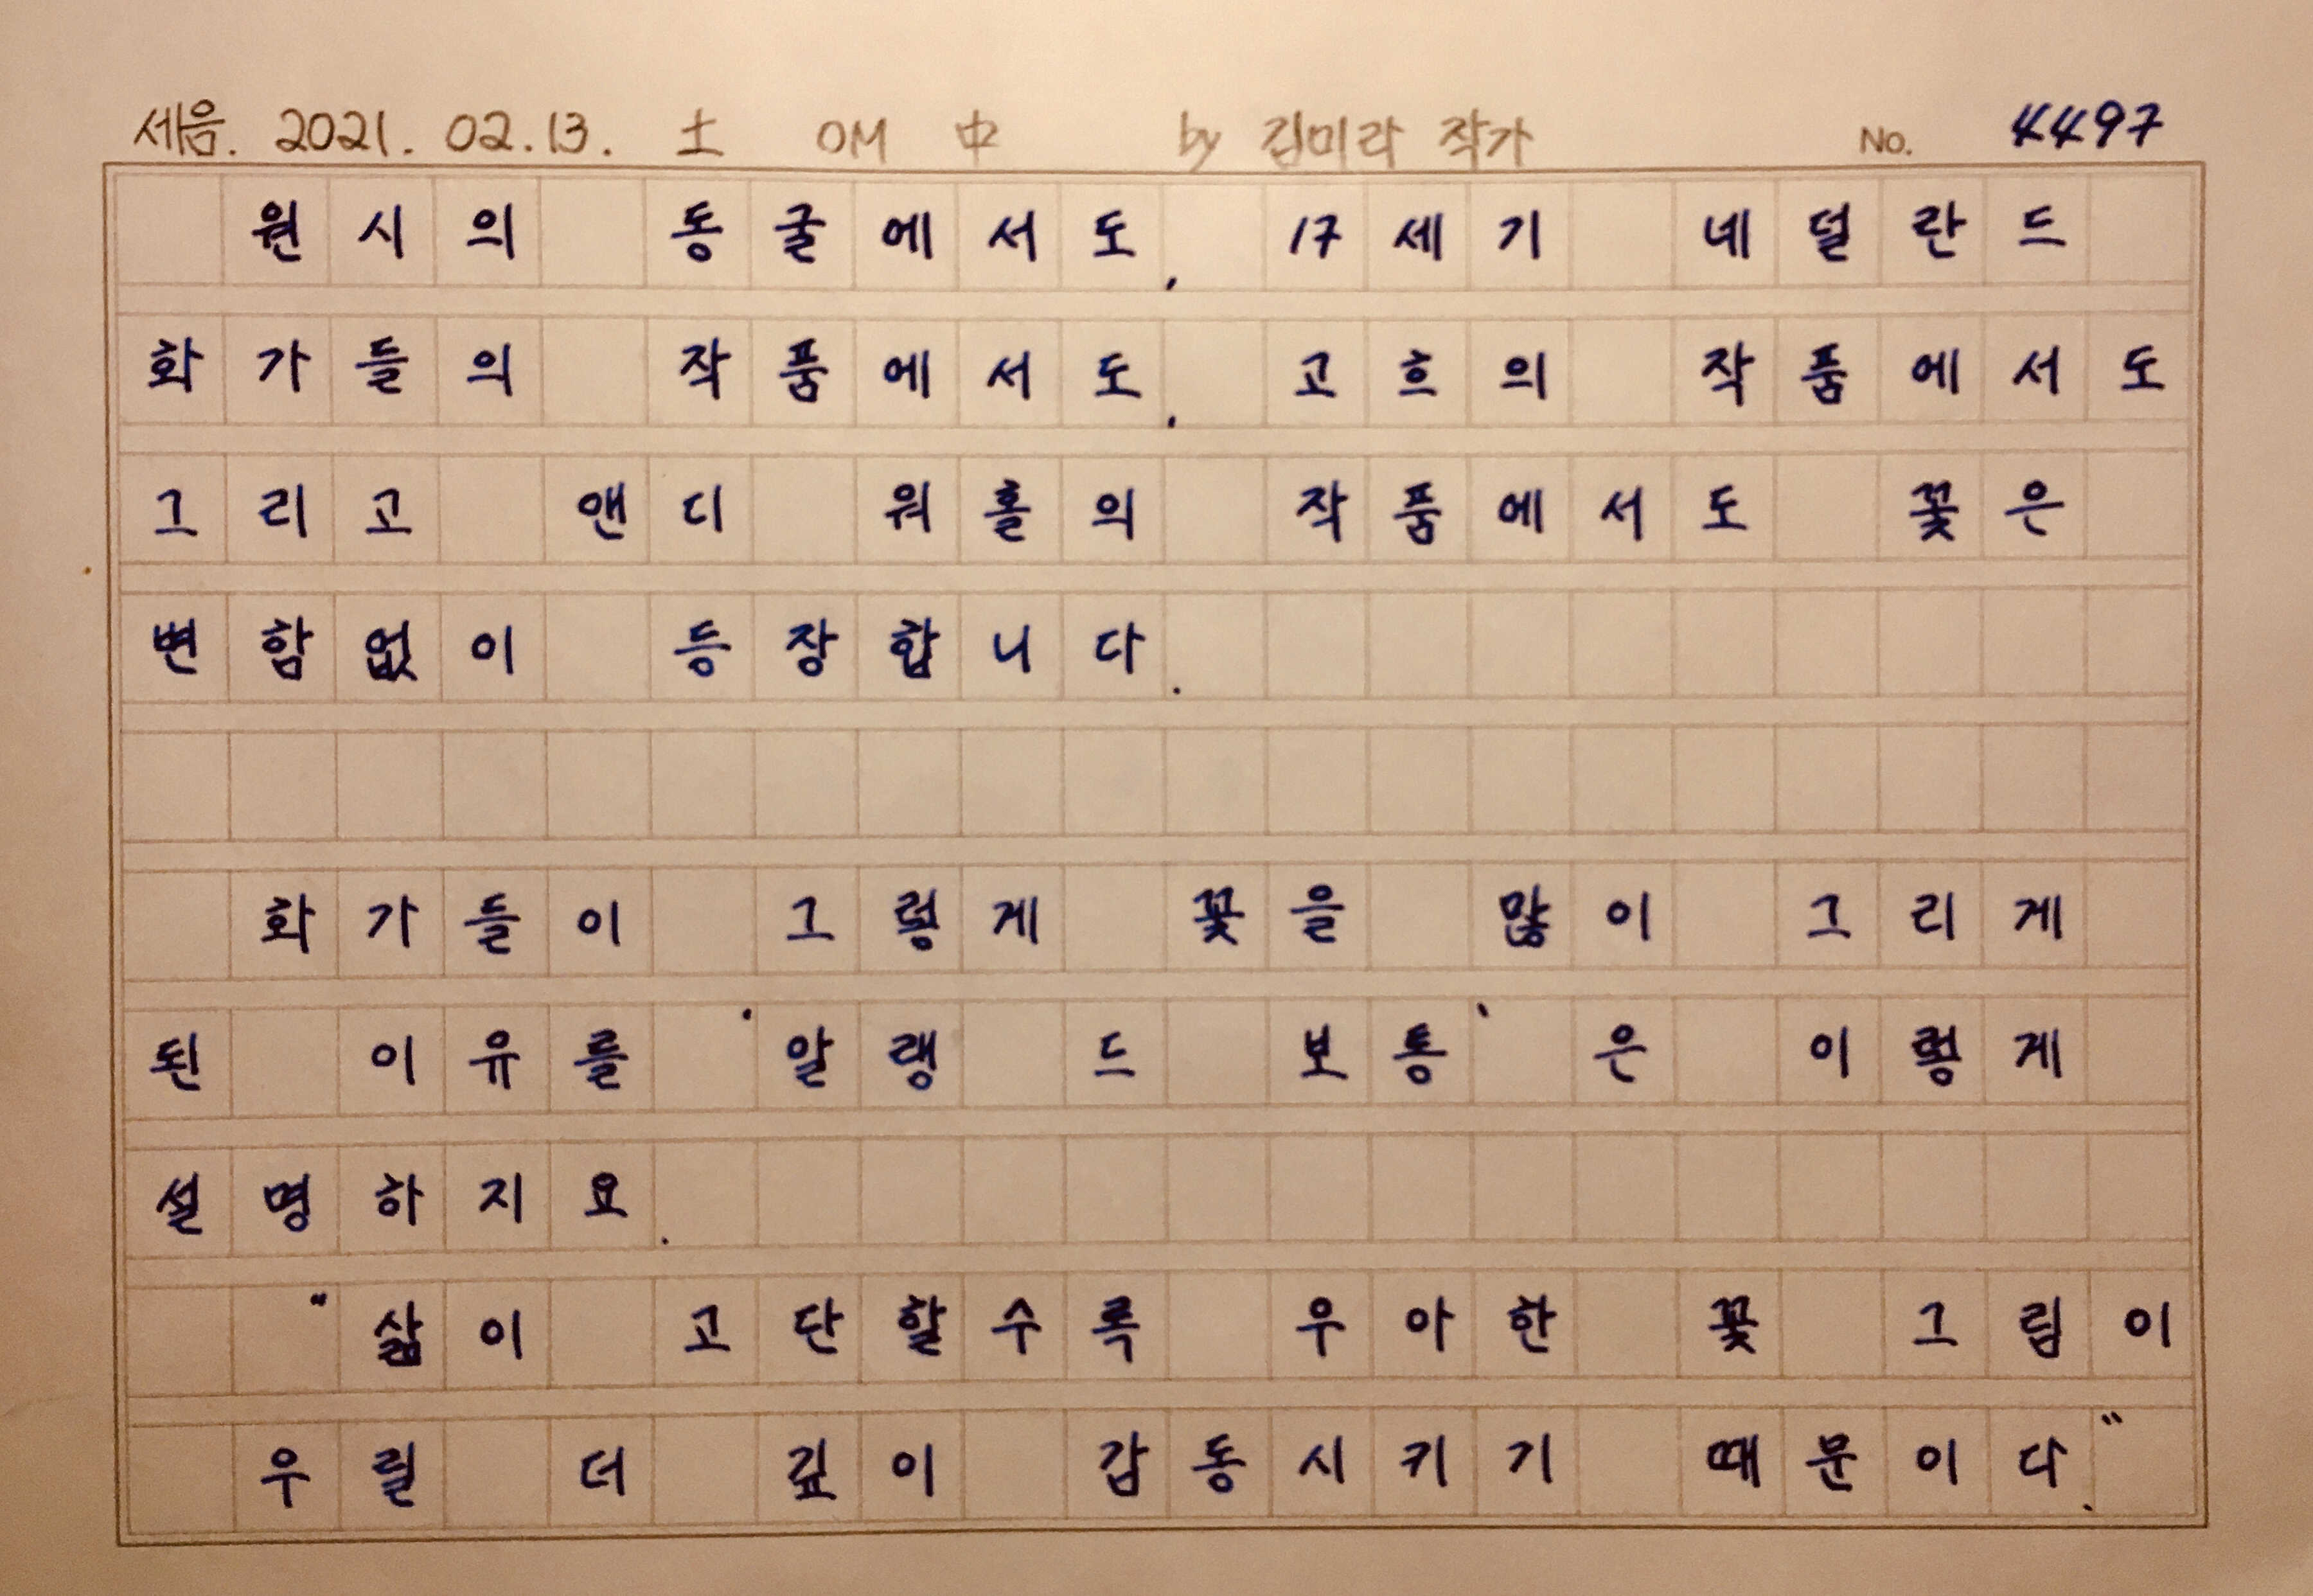 세음. 2021. 02. 13. 土 OM 中 by 김미라 작가 No. 4497
원시의 동굴에서도, 17세기 네덜란드
화가들의 작품에서도, 고흐의 작품에서도
그리고 앤디 워홀의 작품에서도 꽃은
변함없이 등장합니다.
화가들이 그렇게 꽃을 많이 그리게
된 이유를 '알랭 드 보통'은 이렇게
설명하지요.
"삶이 고단할수록 우아한 꽃 그림이
우릴 더 깊이 감동시키기 때문이다."